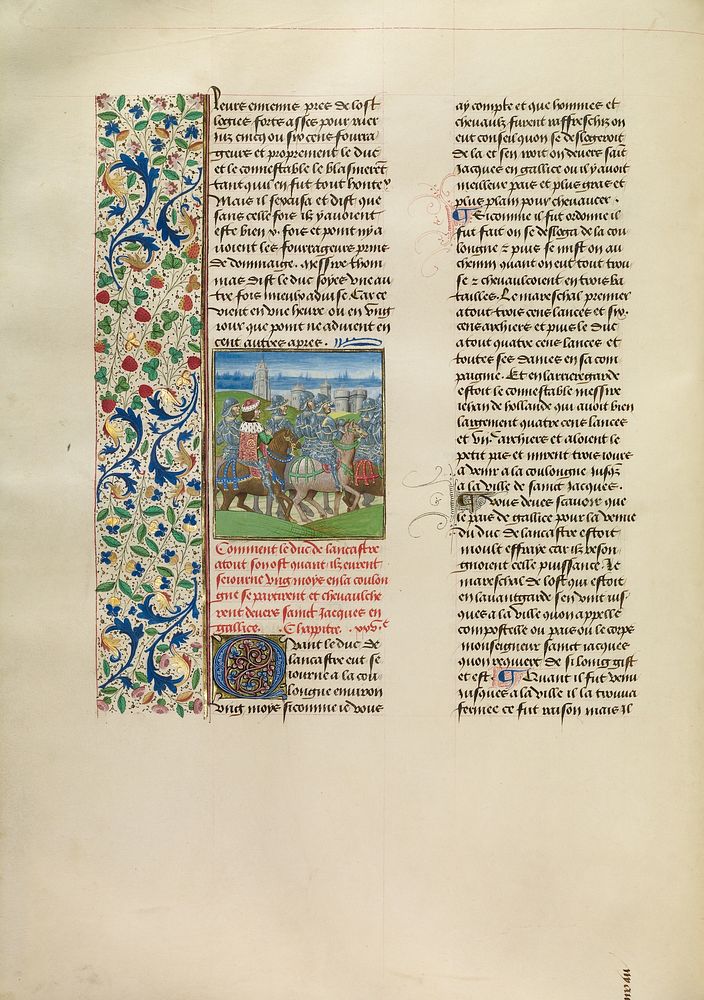 leurs ennemis pres de lost
logies fortz asses pour ruer
ius cincq ou six cens fourra
geurs et proprement le duc
et le connestable le blasmerent
tant quil en fut tout honteux
Mais il sexcusa et dist que
sans celle fois ilz y auoient
este bien v. fois et point ny a
uoient les fourrageurs prins
de dommaige. Messire thom
mas dist le duc soyes vne au
tre fois mieulx aduise Car ce
vient en vne heure ou en vng
iour que point ne aduient en
cent autres apres.
Comment le duc de lancastre
atout son ost quant ilz eurent
seiourne vng moys en la coulon
gne se partirent et cheuaulche
rent deuers saint Jacques en
gallice. Chappitre . xxve
Quant le duc de
lancastre eut se
iourne a la cou
longne enuiron
vng moys si comme ie vous
ay compte et que hommes et
cheuaulx furent raffreschiz on
eut conseil quon se deslogeroit
de la et sen iroit on deuers saint
Jacques en gallice ou il y auoit
meilleur pais et plus gras et
plus plain pour cheuaucer.
Si comme il fut ordonne il
fut fait on se desloga de la cou
longne et puis se mist on au
chemin quant on eut tout trou
se et cheuaulcoient en trois ba
tailles. Le mareschal premier
atout trois cens lances et six.
cens archiers et puis le duc
atout quatre cens lances et
toutes ses dames en sa com
paignie. Et en larrieregarde
estoit le connestable messire
iehan de hollande qui auoit bien
largement quatre cens lances
et viic archiers et aloient le
petit pas et mirent trois iours
a venir a la coulongne iusques
a la ville de saint Jacques.
Vous deues scauoir que
le pais de gallice pour la venue
du duc de lancastre estoit
moult effraye car ilz reson
gnoient celle puissance. Le
mareschal de lost qui estoit
en lauantgarde sen vint ius
ques a la ville quon appelle
compostelle ou pais ou le corps
monseigneur saint iacques
quon requiert de si loing gist
et est. Quant il fut venu
iusques a la ville il la trouua
fermee ce fut raison mais il